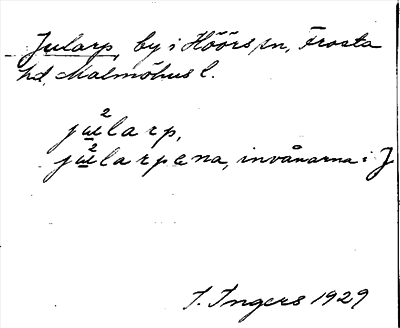 Jularp, by i Höörs sn, Frosta
hd, Malmöhus l.
jɯ̲²larp,
jɯ̲²larpena, invånarna i J
I. Ingers 1929